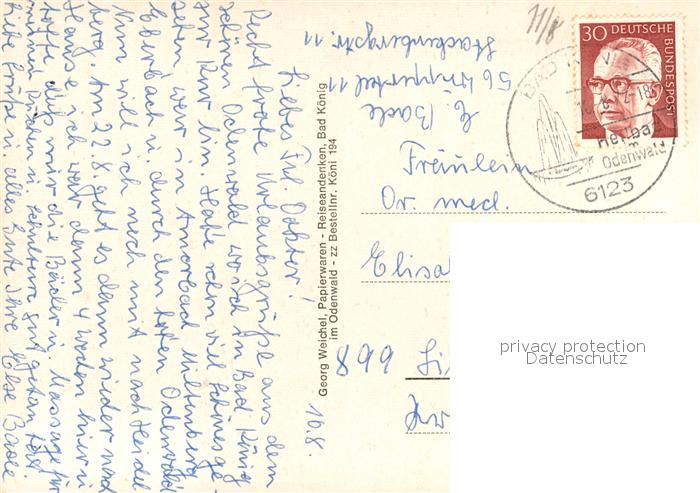 16.8.
Liebes Frl. Doktor!
Recht frohe Urlaubsgrüße aus dem
schönen Odenwald wo ich in Bad König
zur Kur bin. Habe schon viel schönes ge-
sehen, war in Amorbach Miltenberg
Eberbach u. durch den Odenwald
Nun will ich noch mit nach Heidel
berg. Am 22.8. geht es dann wieder nach
Hause, ich war dann 4 Wochen hier u
hoffe daß mir die Bäder u Massage für
meinen Rücken u. Schultern gut getan hat.
Liebe Grüße u alles Gute Ihre Else Baele
Georg Weichel, Papierwaren - Reiseandenken, Bad König
im Odenwald - zz Bestellnr. Köni 194
E. Baele
56 Wuppertal 11
Stackenbergstr. 11
11/8
30 DEUTSCHE
BUNDESPOST
BAD
18
Heilba
im
Odenwald
6123
Fräulein
Dr. med.
Elisa
899 Li
privacy protection
Datenschutz